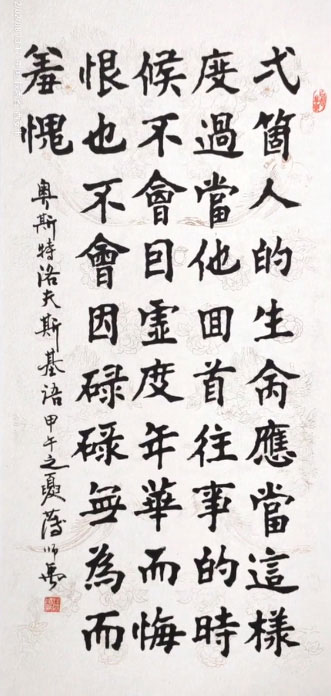 弌箇人的生命應當這樣
度過當他回首往事的時
候不會囙虛度年華而悔
恨也不會因碌碌無為而
羞愧
奥斯特洛夫斯基语 甲午之夏